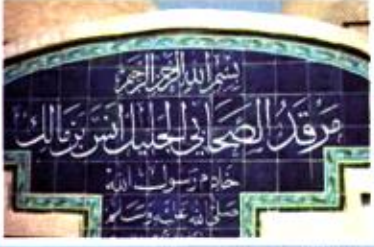 بسم الله الرحمن الرحيم
مرقد الصحابي الجليل أنس بن مالك
خادم رسول الله
صلى الله عليه وسلم